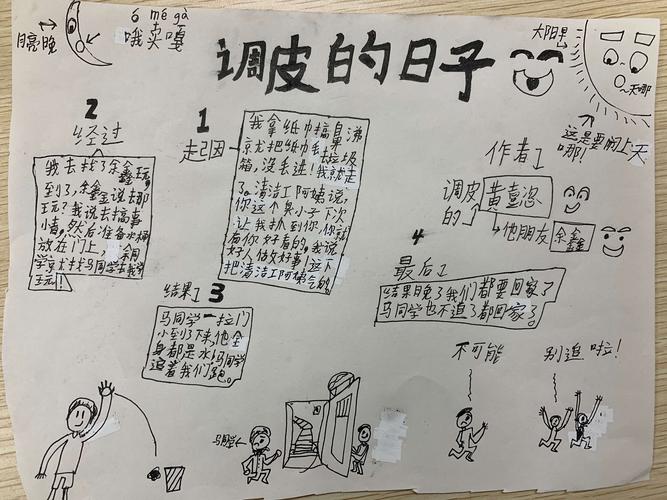 调皮的日子
月亮晚
ó mé gà
哦卖嘎
太阳早
天哪
这是要闹上天
哪!
1
起因
我拿纸巾搞鼻涕
然后把纸巾丢去垃圾
箱,没丢进!我就走
了。清洁工阿姨说,
你这个臭小子下次
让我扒到你,你就
有你好看的,我说
好人做好事,这下
把清洁工阿姨气的。
2
经过
我去找了余鑫玩,
到了,余鑫说去哪
玩?我说去搞事
情,然后准备水桶
放在门上,
玩!
结果
3
马同学一拉门
小到了下来,他全
身都是水,马同学
追着我们跑。
4
最后
结果晚了我们都要回家了
马同学也不追了都回家了。
作者
调皮
的
黄喜恣
他朋友
余鑫
马同学
不可能
别追啦!